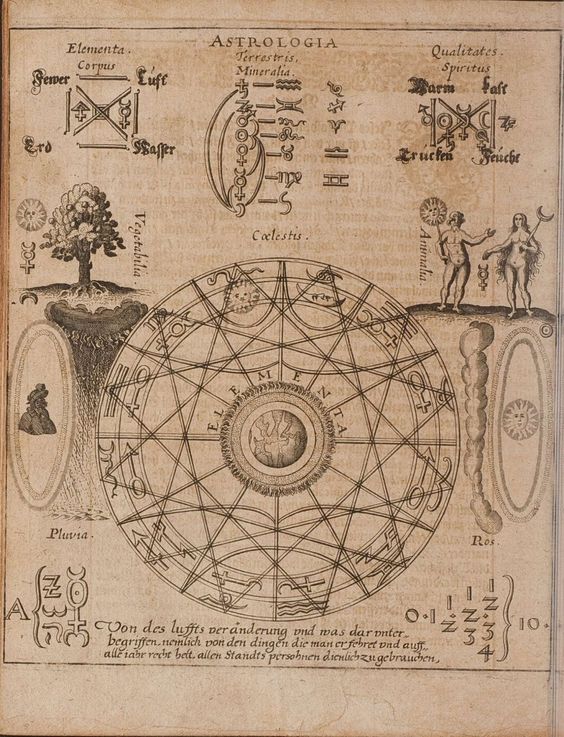 ASTROLOGIA
Elementa.
Corpus
Fewer Luft
Erd Wasser
Terrestris,
Mineralia.
Qualitates.
Spiritus
Warm kalt
Trucken Feucht
Vegetabilia
Animalia
Cœlestis.
ELEMENTA
Pluvia.
Ros.
A
0·1 1 2 1 2 3 1 2 3 4 10·
Von des luffts veränderung vnd was darunter
begriffen, nemlich von den dingen die man erfehret vnd auff
alle iahr recht helt, allen Standts persohnen dienlich zu gebrauchen,